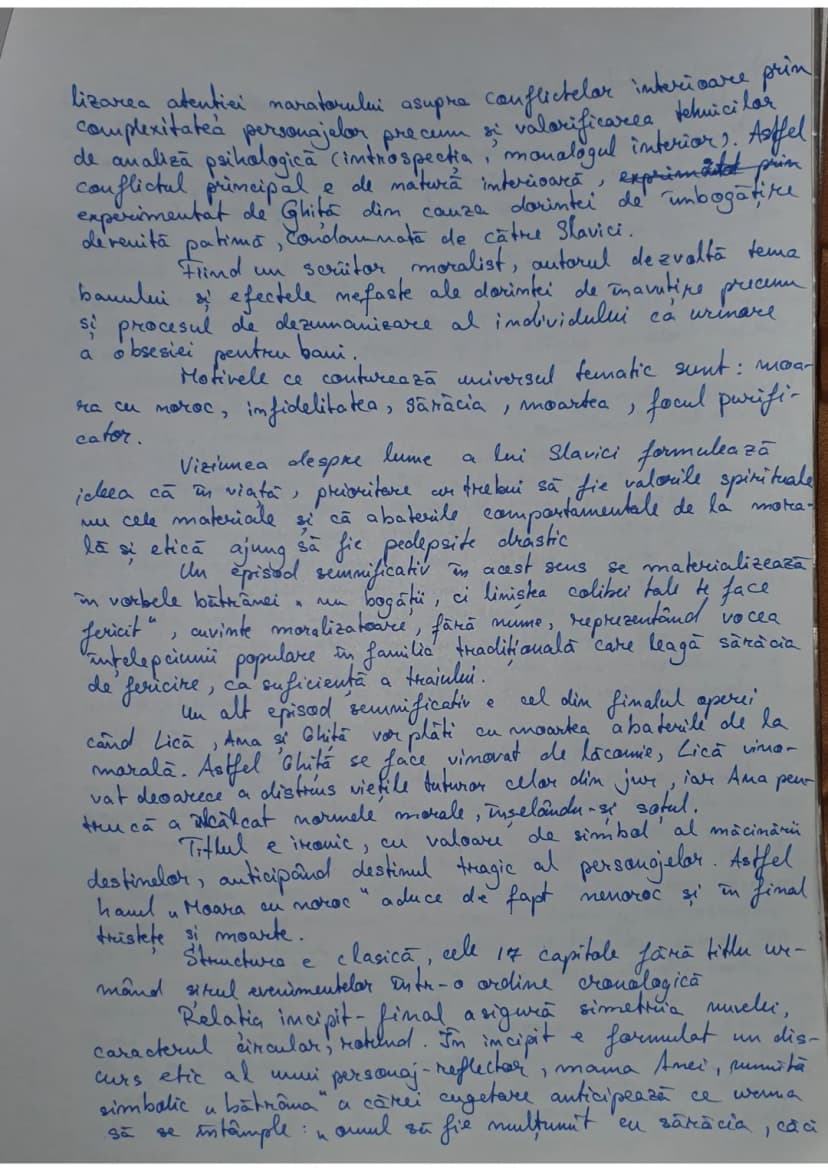 lizarea atenției naratorului asupra conflictelor interioare prin
complexitatea personajelor precum și valorificarea tehnicilor
de analiză psihologică (introspecția, monologul interior). Astfel
conflictul principal e de natură interioară, prin
experimentat de Ghiță din cauza dorinței de îmbogățire
devenită patimă, condamnată de către Slavici.
Fiind un scriitor moralist, autorul dezvoltă tema
banului și efectele nefaste ale dorinței de înavuțire precum
și procesul de dezumanizare al individului ca urmare
a obsesiei pentru bani.
Motivele ce conturează universul tematic sunt: moa-
ra cu noroc, infidelitatea, sărăcia, moartea, focul purifi-
cator.
Viziunea despre lume a lui Slavici formulează
ideea că în viață, prioritare ar trebui să fie valorile spirituale
nu cele materiale și că abaterile comportamentale de la mora-
lă și etică ajung să fie pedepsite drastic
Un episod semnificativ în acest sens se materializează
în vorbele bătrânei „nu bogății, ci liniștea colibei tale te face
fericit", cuvinte moralizatoare, fără nume, reprezentând vocea
înțelepciunii populare în familia tradițională care leagă sărăcia
de fericire, ca suficiență a traiului.
Un alt episod semnificativ e cel din finalul operei
când Lică, Ana și Ghiță vor plăti cu moartea abaterile de la
morală. Astfel Ghiță se face vinovat de lăcomie, Lică vino-
vat deoarece a distrus viețile tuturor celor din jur, iar Ana pen
tru că a încălcat normele morale, înșelându-și soțul.
Titlul e ironic, cu valoare de simbol al măcinării
destinelor, anticipând destinul tragic al personajelor. Astfel
hanul „Moara cu noroc" aduce de fapt nenoroc și în final
tristețe și moarte.
Structura e clasică, cele 17 capitole fără titlu ur-
mând șirul evenimentelor într-o ordine cronologică
Relația incipit-final asigură simetria nuvelei,
caracterul circular, rotund. În incipit e formulat un dis-
curs etic al unui personaj-reflector, mama Anei, numită
simbolic „bătrâna" a cărei cugetare anticipează ce urma
să se întâmple: „omul să fie mulțumit cu sărăcia, căci